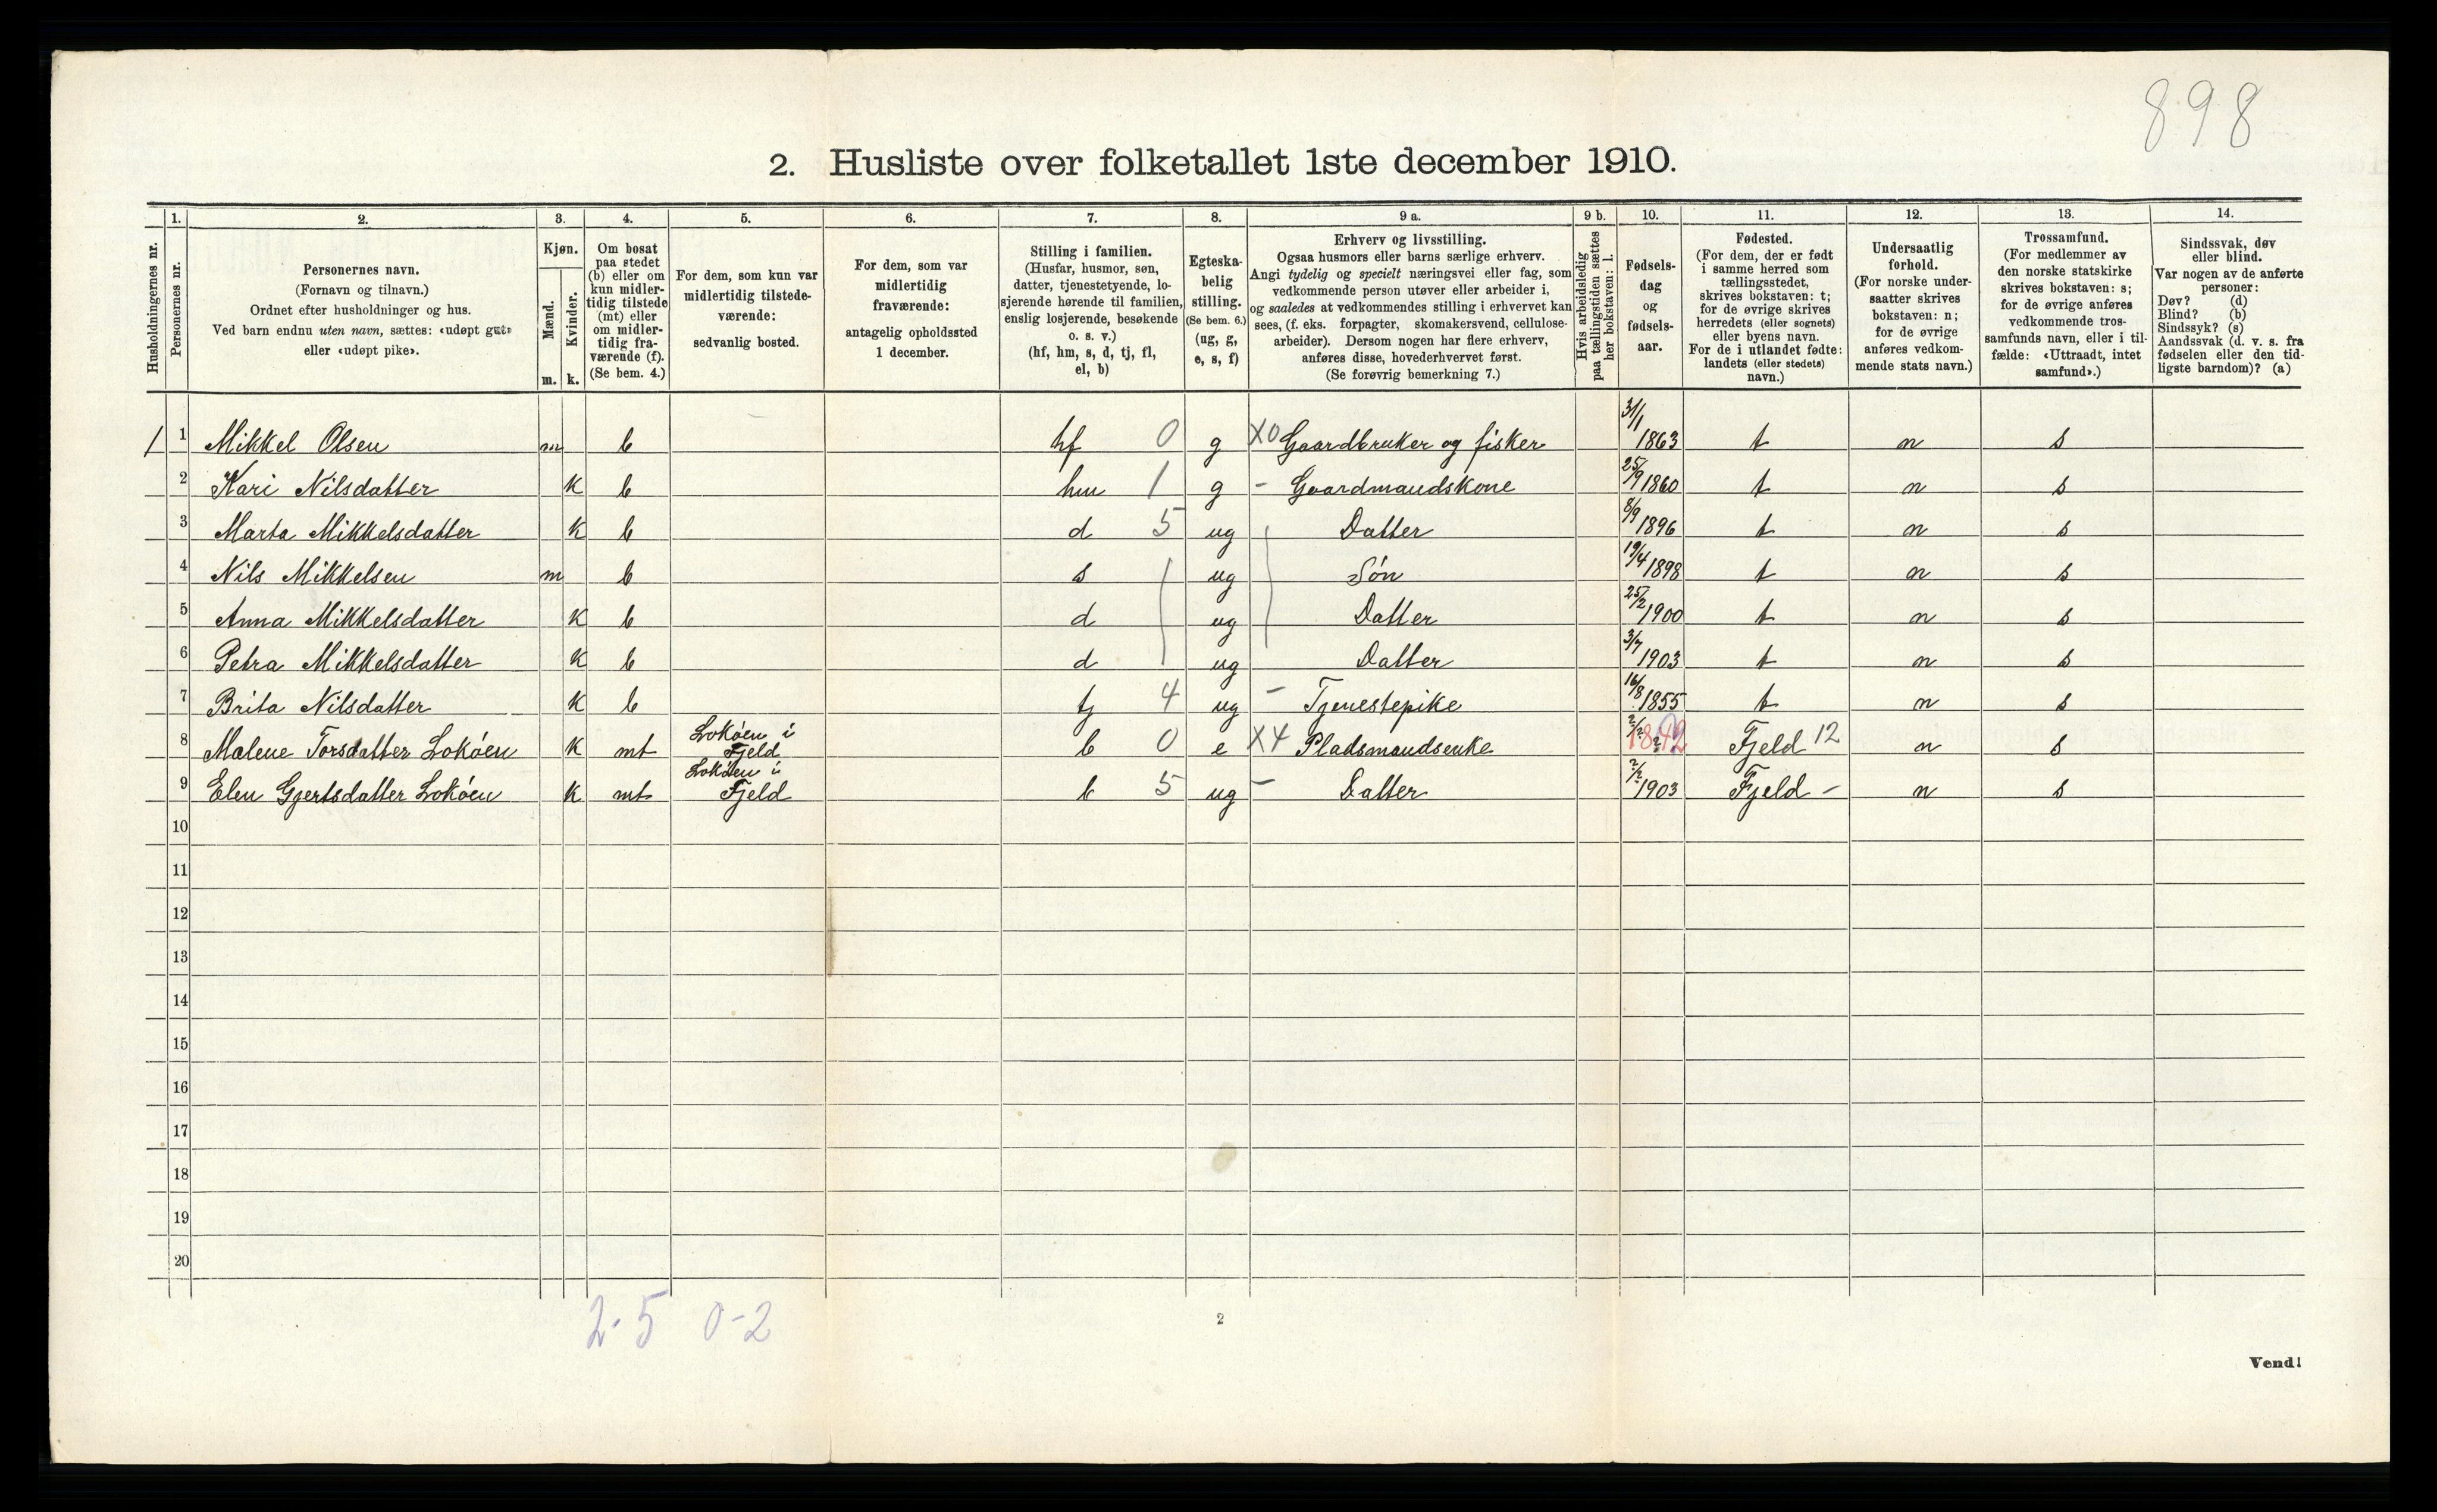 898
2. Husliste over folketallet 1ste december 1910.
Husholdningernes nr.
1. Personernes nr.
2. Personernes navn.
(Fornavn og tilnavn.)
Ordnet efter husholdninger og hus.
Ved barn endnu uten navn, sættes: «udøpt gut»
eller «udøpt pike».
3. Kjøn.
Mænd. m.
Kvinder. k.
4. Om bosat
paa stedet
(b) eller om
kun midler-
tidig tilstede
(mt) eller
om midler-
tidig fra-
værende (f).
(Se bem. 4.)
5. For dem, som kun var
midlertidig tilstede-
værende:
sedvanlig bosted.
6. For dem, som var
midlertidig
fraværende:
antagelig opholdssted
1 december.
7. Stilling i familien.
(Husfar, husmor, søn,
datter, tjenestetyende, lo-
sjerende hørende til familien,
enslig losjerende, besøkende
o. s. v.)
(hf, hm, s, d, tj, fl,
el, b)
8. Egteska-
belig
stilling.
(Se bem. 6.)
(ug, g,
e, s, f)
9 a. Erhverv og livsstilling.
Ogsaa husmors eller barns særlige erhverv.
Angi tydelig og specielt næringsvei eller fag, som
vedkommende person utøver eller arbeider i,
og saaledes at vedkommendes stilling i erhvervet kan
sees, (f. eks. forpagter, skomakersvend, cellulose-
arbeider). Dersom nogen har flere erhverv,
anføres disse, hovederhvervet først.
(Se forøvrig bemerkning 7.)
9 b. Hvis arbeidsledig
paa tællingstiden sættes
her bokstaven: l.
10. Fødsels-
dag
og
fødsels-
aar.
11. Fødested.
(For dem, der er født
i samme herred som
tællingsstedet,
skrives bokstaven: t;
for de øvrige skrives
herredets (eller sognets)
eller byens navn.
For de i utlandet fødte:
landets (eller stedets)
navn.)
12. Undersaatlig
forhold.
(For norske under-
saatter skrives
bokstaven: n;
for de øvrige
anføres vedkom-
mende stats navn.)
13. Trossamfund.
(For medlemmer av
den norske statskirke
skrives bokstaven: s;
for de øvrige anføres
vedkommende tros-
samfunds navn, eller i til-
fælde: «Uttraadt, intet
samfund».)
14. Sindssvak, døv
eller blind.
Var nogen av de anførte
personer:
Døv? (d)
Blind? (b)
Sindssyk? (s)
Aandssvak (d. v. s. fra
fødselen eller den tid-
ligste barndom)? (a)
1 1 Mikkel Olsen m b hf 0 g X0 Gaardbruker og fisker 31/1 1863 t n s
2 Kari Nilsdatter k b hm 1 g - Gaardmandskone 25/9 1860 t n s
3 Marta Mikkelsdatter k b d 5 ug Datter 8/9 1896 t n s
4 Nils Mikkelsen m b s ug Søn 19/4 1898 t n s
5 Anna Mikkelsdatter k b d ug Datter 25/2 1900 t n s
6 Petra Mikkelsdatter k b d ug Datter 3/7 1903 t n s
7 Brita Nilsdatter k b tj 4 ug - Tjenestepike 16/8 1855 t n s
8 Malene Torsdatter Lokøen k mt Lokøen i Fjeld b 0 e X4 Pladsmandsenke ?/? 1842 Fjeld 12 n s
9 Elen Gjertsdatter Lokøen k mt Lokøen i Fjeld b 5 ug - Datter ?/? 1903 Fjeld - n s
10
11
12
13
14
15
16
17
18
19
20
2-5 0-2
2
Vend!